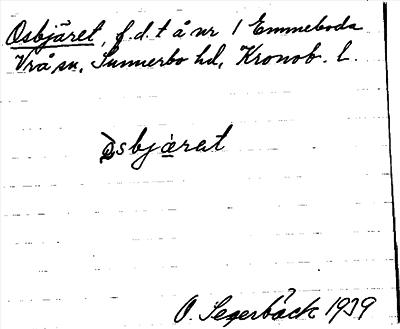 Osbjäret, f.d. t å nr 1 Emmeboda
Vrå sn, Sunnerbo hd, Kronob. l.
osbjärat
O. Segerbäck 1939